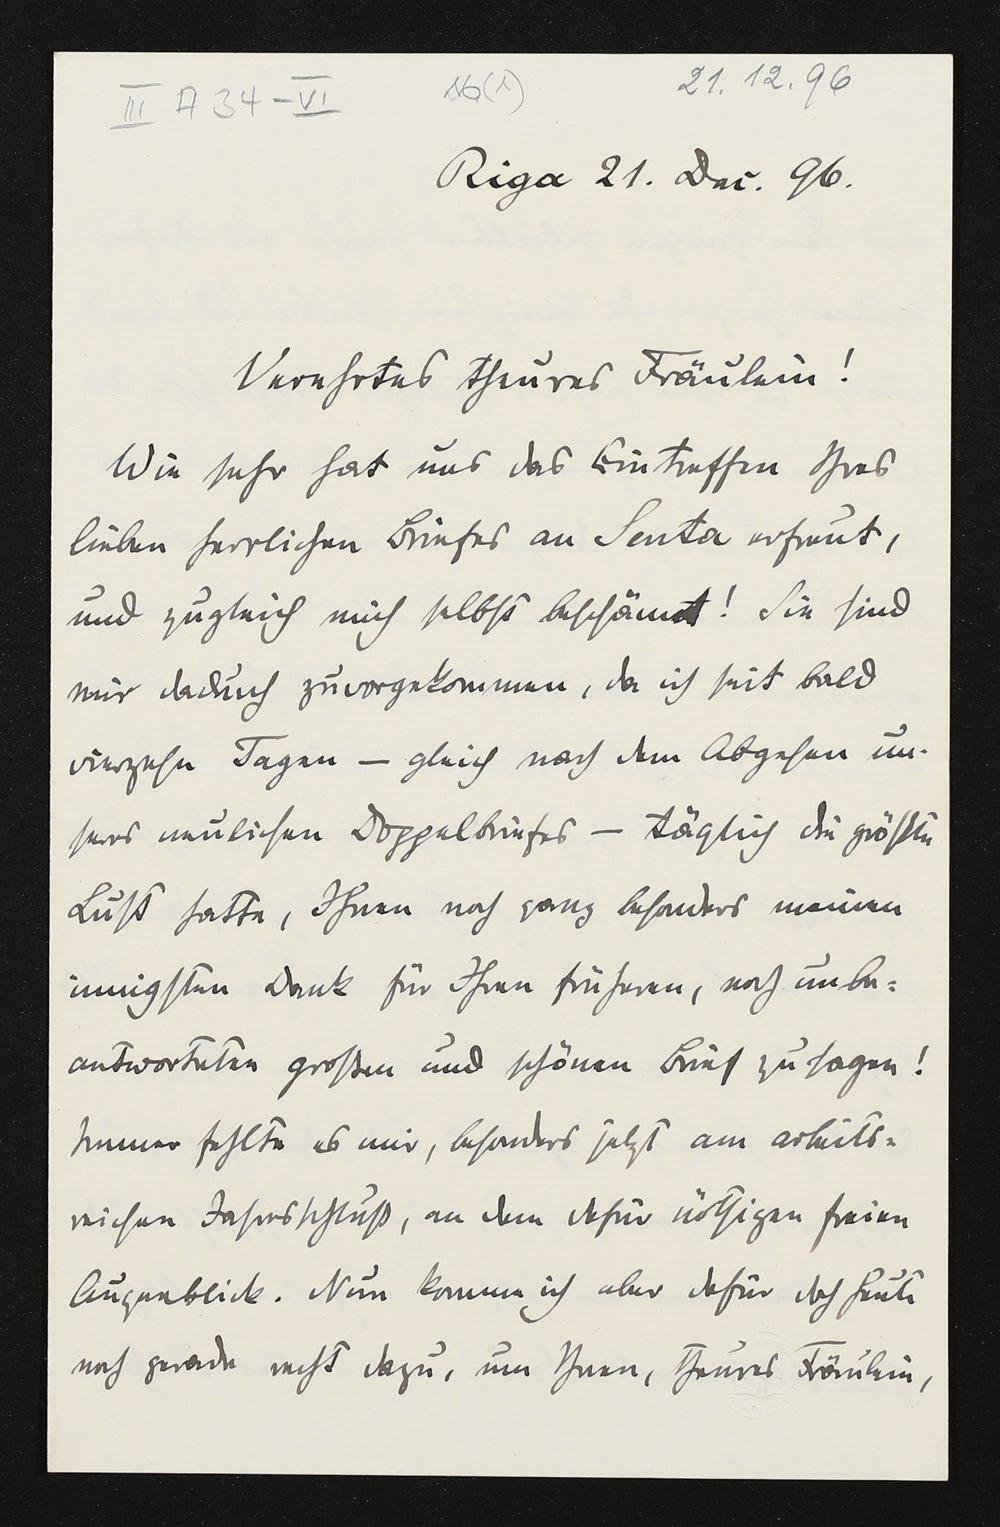 III A 34-VI 16(1) 21.12.96
Riga 21. Dec. 96.
Verehrtes theures Fräulein!
Wie sehr hat uns das Eintreffen Ihres
lieben herrlichen Briefes an Senta erfreut,
und zugleich mich selbst beschämt! Sie sind
mir dadurch zuvorgekommen, da ich seit bald
vierzehn Tagen — gleich nach dem Abgehen un-
seres neulichen Doppelbriefes — täglich die größte
Lust hatte, Ihnen noch ganz besonders meinen
innigsten Dank für Ihren früheren, noch unbe=
antworteten großen und schönen Brief zu sagen!
Immer fehlte es mir, besonders jetzt am arbeits=
reichen Jahresschluß, an dem dafür nöthigen freien
Augenblick. Nun komme ich aber dafür doch heute
noch gerade recht dazu, um Ihnen, theures Fräulein,